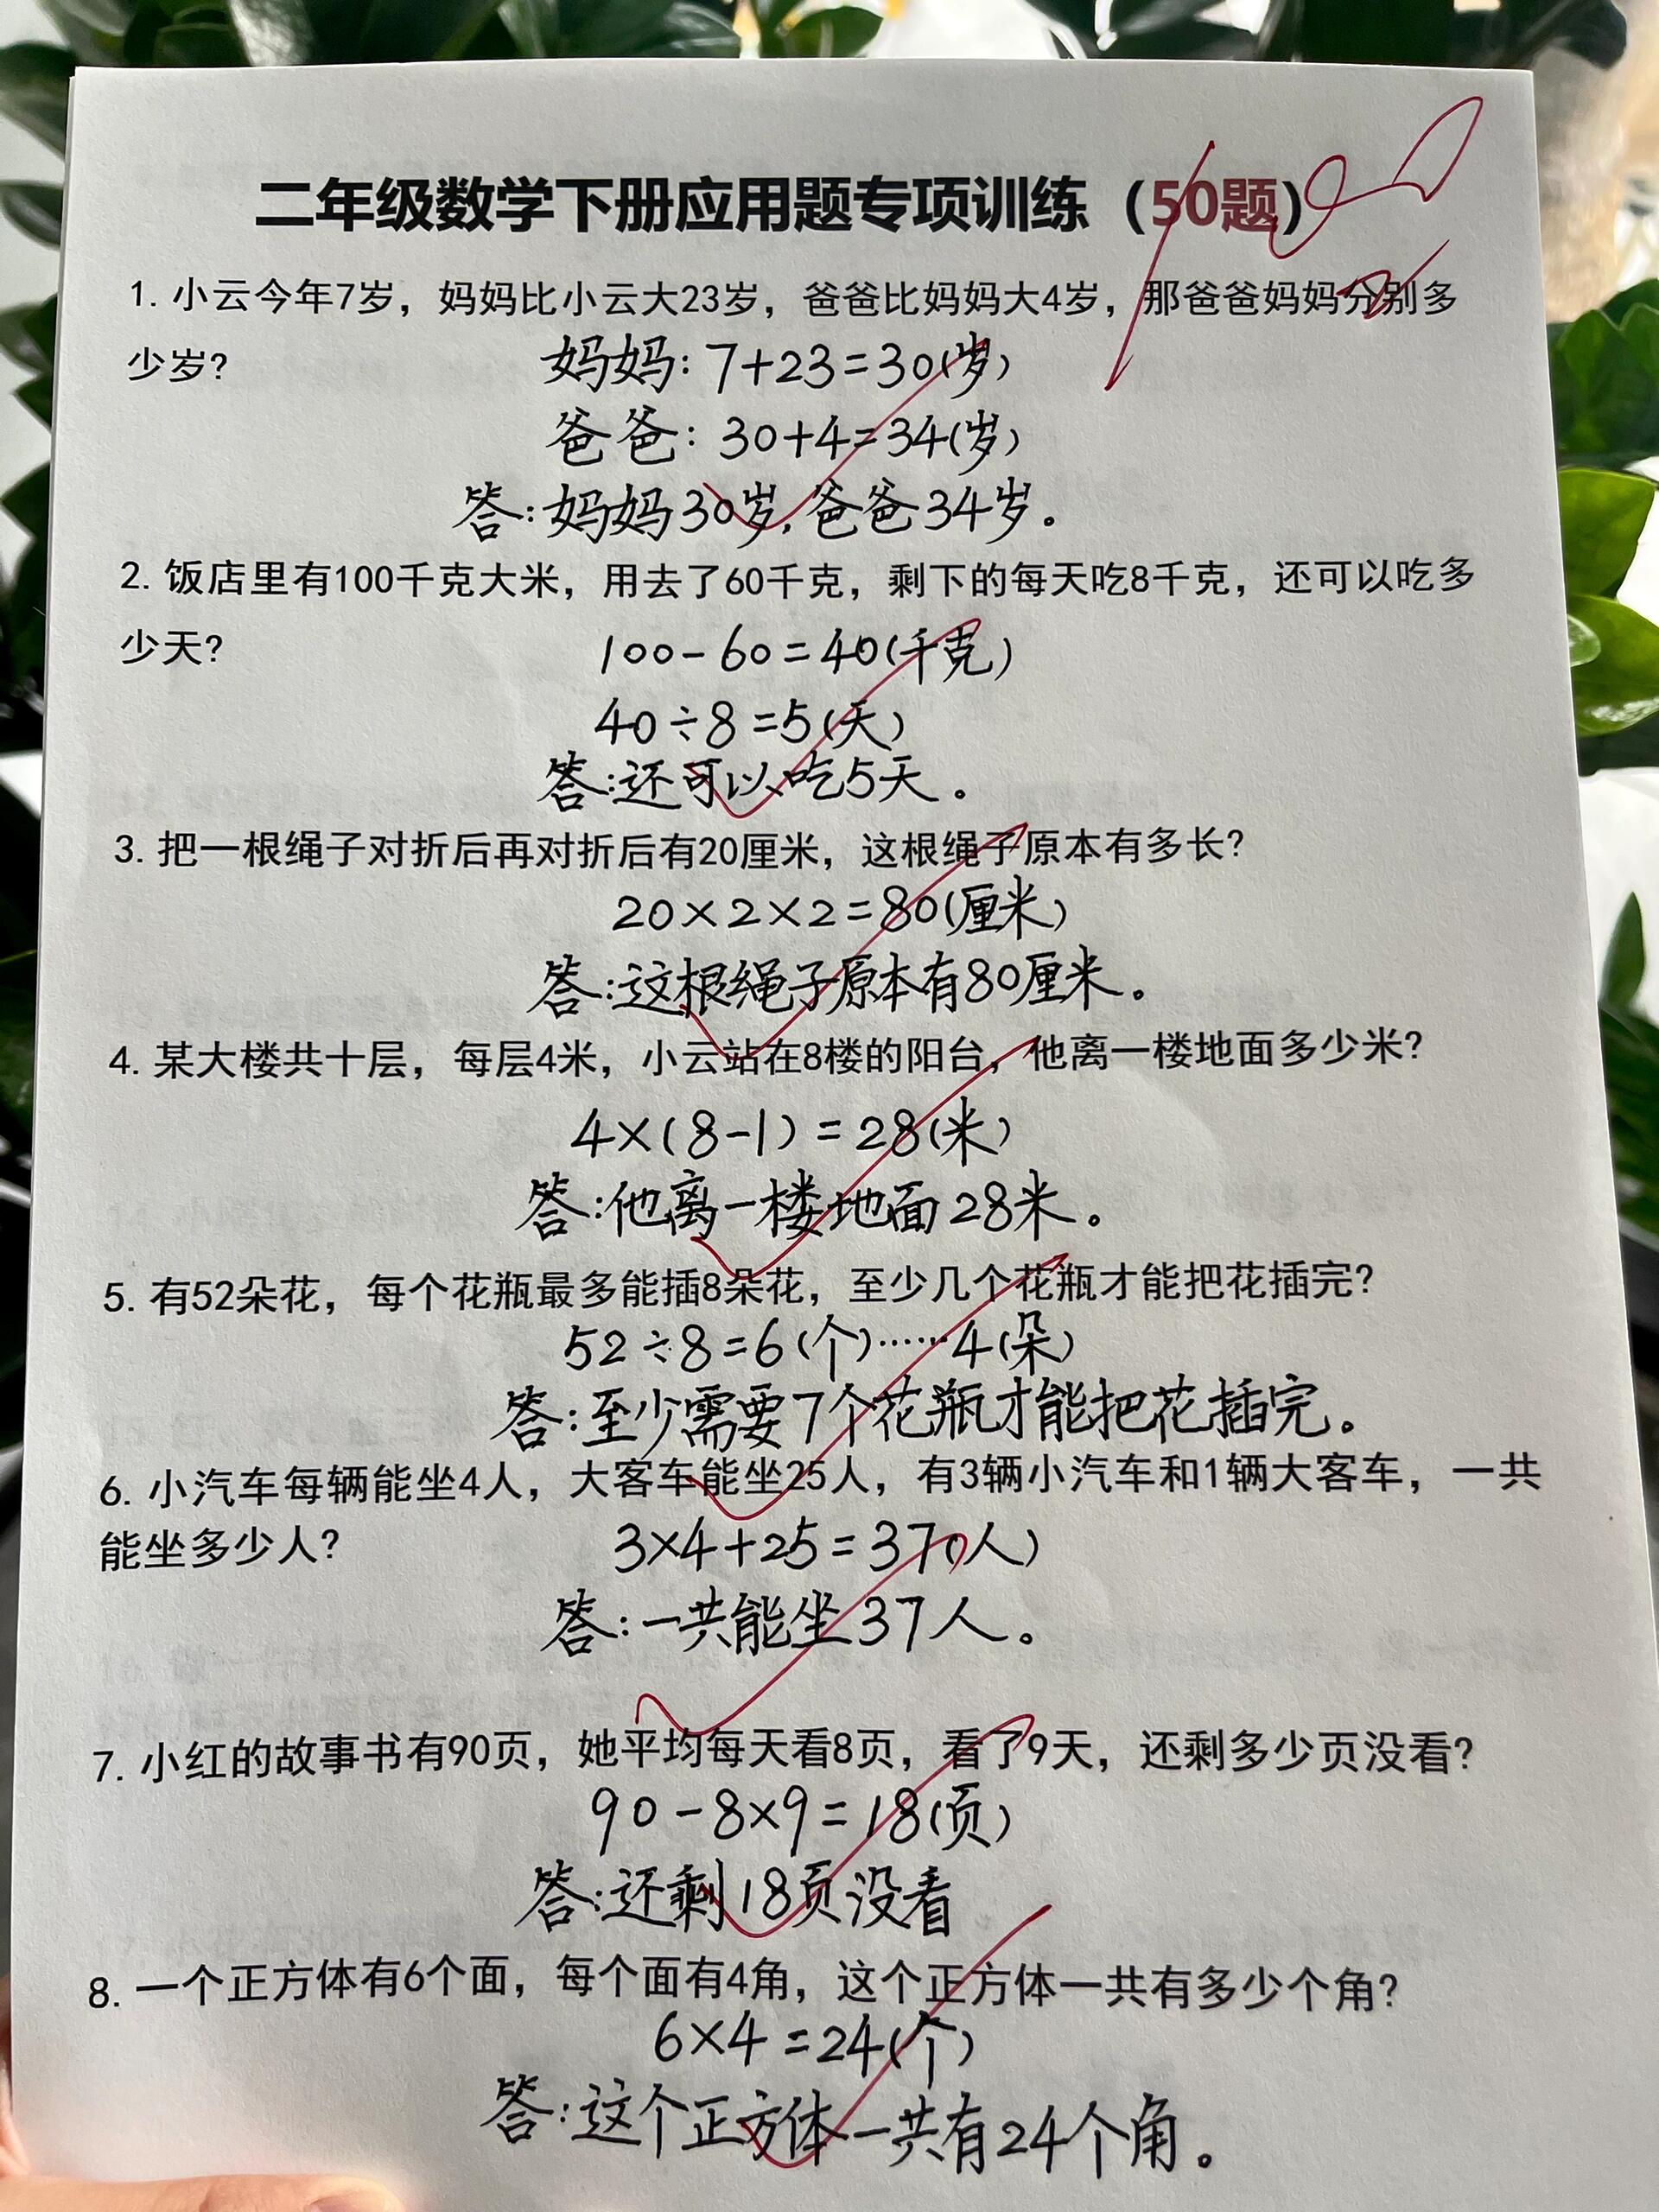 二年级数学下册应用题专项训练（50题）
1. 小云今年7岁，妈妈比小云大23岁，爸爸比妈妈大4岁，那爸爸妈妈分别多
少岁？
妈妈：7+23=30(岁)
爸爸：30+4=34(岁)
答：妈妈30岁，爸爸34岁。
2. 饭店里有100千克大米，用去了60千克，剩下的每天吃8千克，还可以吃多
少天？
100-60=40(千克)
40÷8=5(天)
答：还可以吃5天。
3. 把一根绳子对折后再对折后有20厘米，这根绳子原本有多长？
20×2×2=80(厘米)
答：这根绳子原本有80厘米。
4. 某大楼共十层，每层4米，小云站在8楼的阳台，他离一楼地面多少米？
4×(8-1)=28(米)
答：他离一楼地面28米。
5. 有52朵花，每个花瓶最多能插8朵花，至少几个花瓶才能把花插完？
52÷8=6(个)……4(朵)
答：至少需要7个花瓶才能把花插完。
6. 小汽车每辆能坐4人，大客车能坐25人，有3辆小汽车和1辆大客车，一共
能坐多少人？
3×4+25=37(人)
答：一共能坐37人。
7. 小红的故事书有90页，她平均每天看8页，看了9天，还剩多少页没看？
90-8×9=18(页)
答：还剩18页没看
8. 一个正方体有6个面，每个面有4角，这个正方体一共有多少个角？
6×4=24(个)
答：这个正方体一共有24个角。